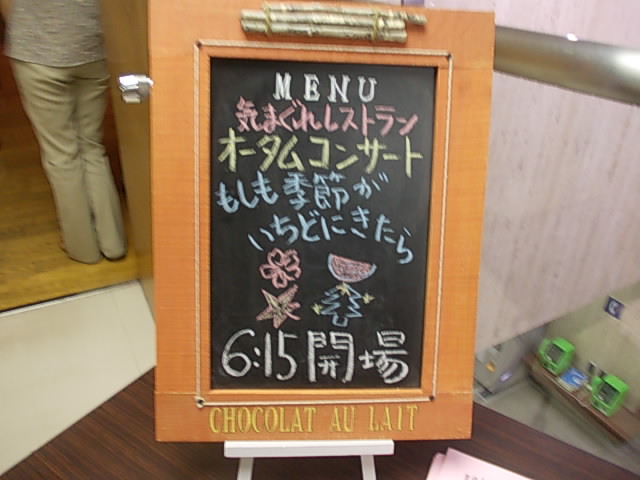 MENU
気まぐれレストラン
オータムコンサート
もしも季節が
いちどにきたら
6:15開場
CHOCOLAT AU LAIT